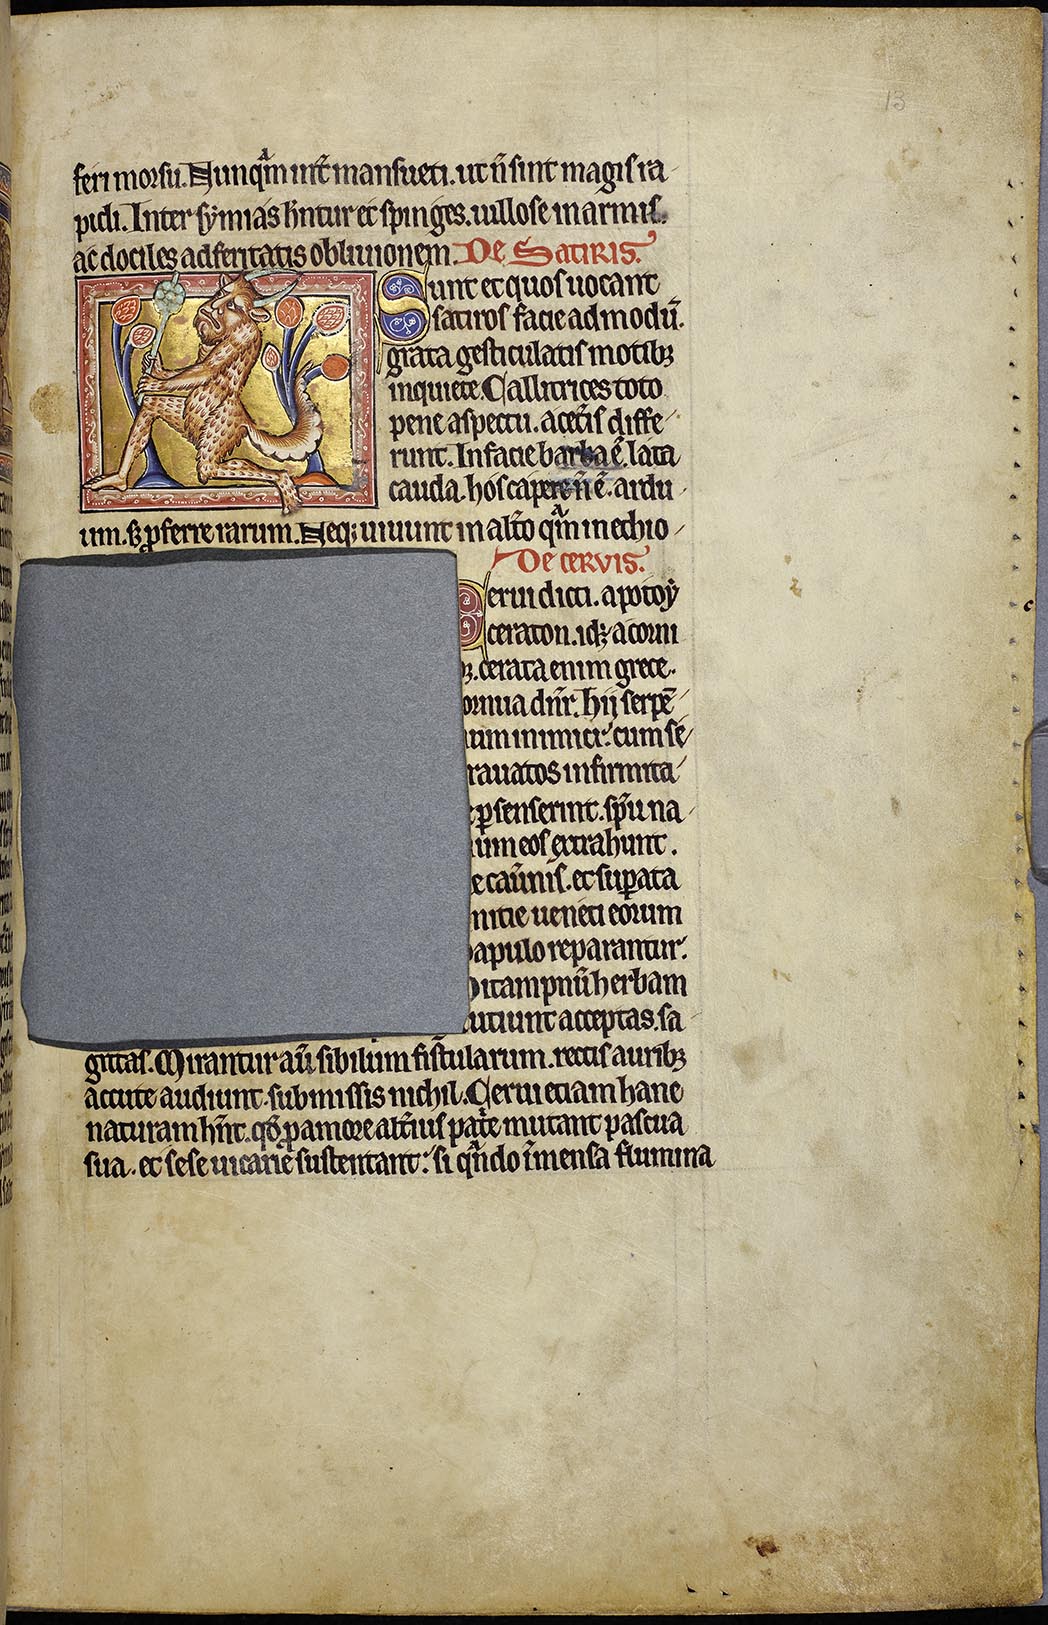 13
feri morsu. Nunqᵃm int̄ mansueti. ut n̄ sint magis ra
pidi. Inter symias hn̄tur et spinges. uillose in armis.
ac dociles ad feritatis obliuionem. De Satiris.
Sunt et quos uocant
satiros facie admodū.
grata gesticulatis motibꝫ
inquiete. Callitrices toto
pene aspectu. a cet̄is diffe
runt. In facie barba ē. lata
cauda. hos capere n̄ ē. ardu
um. sꝫ ꝓferre rarum. Neqꝫ uiuunt in alt̄o qᵃm in ethio
De cervis.
Cerui dicti. apotoỹ
ceraton. idꝫ a corni
bꝫ. cerata enim grece.
ornua dn̄r. hij serpē
um inimici. cum sē
rauatos infirmita
ꝑsenserint. sp̄u na
um eos extrahunt.
e cau̅nis. et suꝑata
nitie ueneti eorum
apulo reparantur.
itampnū herbam
utiunt acceptas. sa
gittas. Mirantur aū sibilum fistularum. rectis auribꝫ
accute audiunt. submissis nichil. Cerui etiam hanc
naturam hn̄t. qd̄ ꝓ amore alt̄ius pat̄e mutant pascua
sua. et sese uicarie sustentant. si qᵃndo īmensa flumina